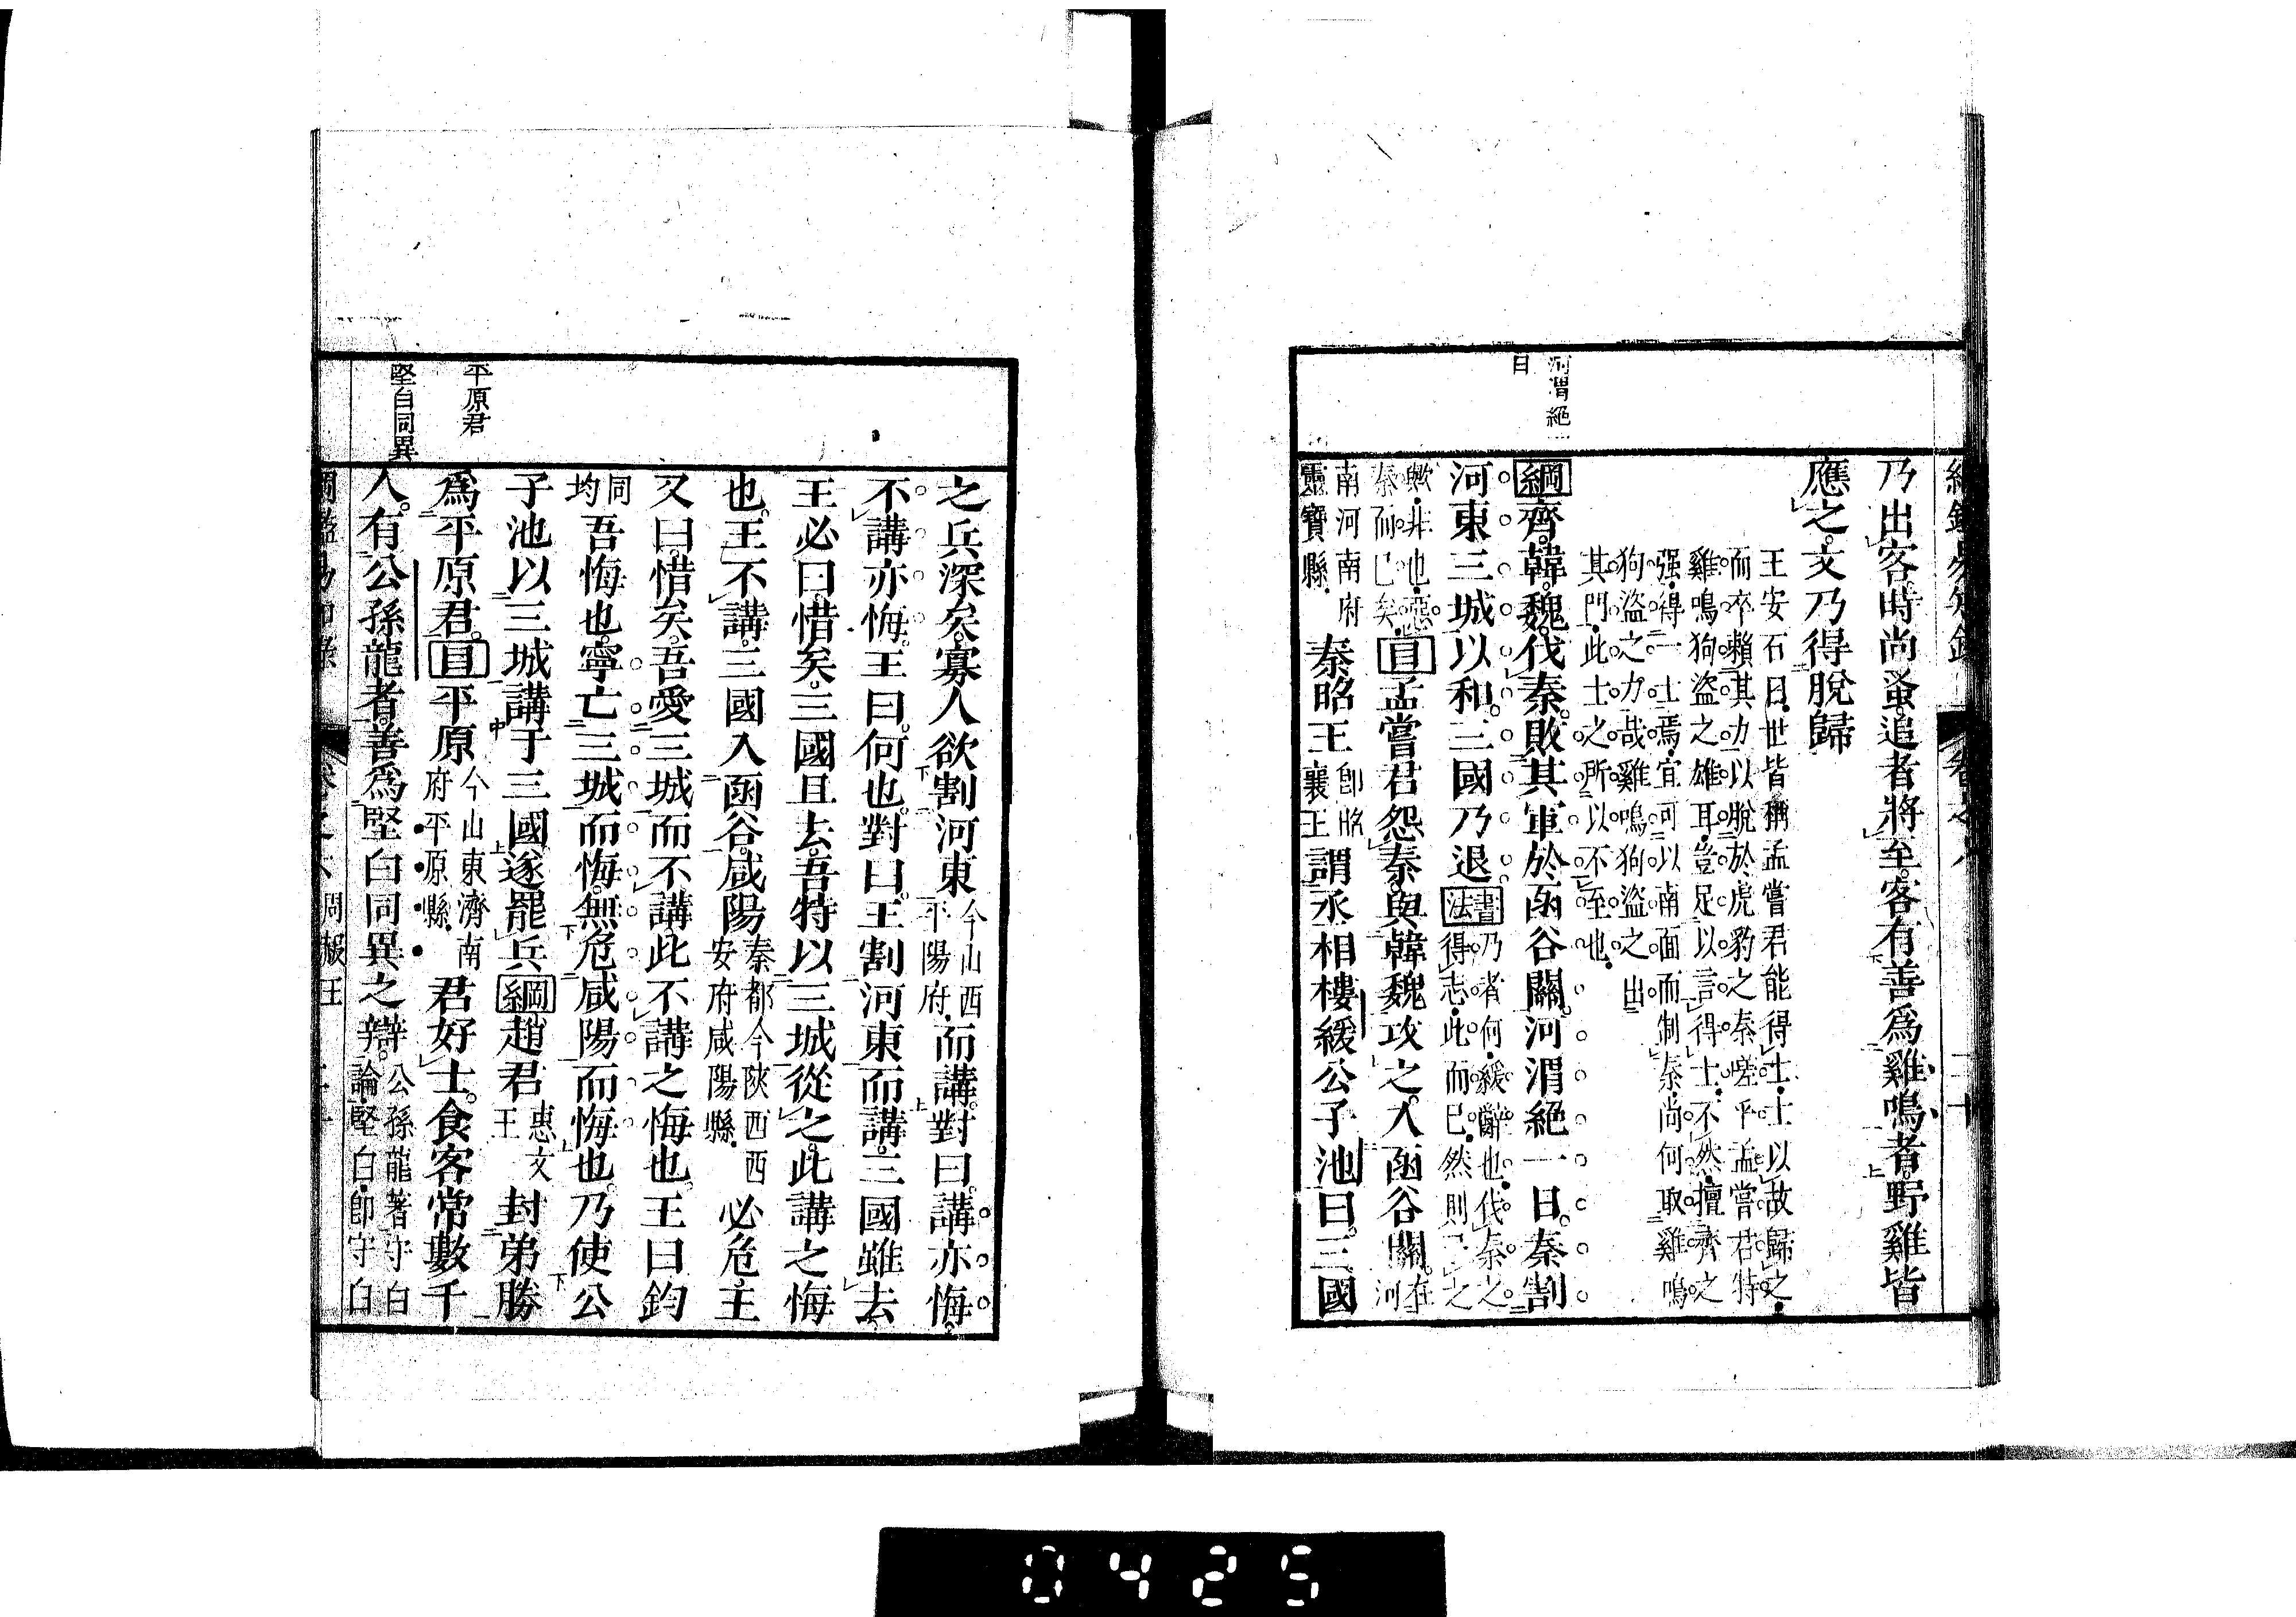 河渭絕一
日
乃出客時尚蚤追者將至客有善爲雞鳴者野雞皆
應之文乃得脫歸
王安石曰世皆稱孟嘗君能得士士以故歸之
而卒賴其力以脫於虎豹之秦嗟乎孟嘗君特
雞鳴狗盜之雄耳豈足以言得士不然擅齊之
强得一士焉宜可以南面而制秦尚何取雞鳴
狗盜之力哉雞鳴狗盜之出
其門此士之所以不至也
綱齊韓魏伐秦敗其軍於函谷關河渭絕一日秦割
河東三城以和三國乃退書法乃者何緩辭也伐秦之
得志此而已然則已之
歟非也惡
秦而已矣目孟嘗君怨秦與韓魏攻之入函谷關在
河
南河南府
靈寶縣秦昭王卽昭
襄王謂丞相樓緩公子池曰三國
平原君
堅白同異
之兵深矣寡人欲割河東今山西
平陽府而講對曰講亦悔
不講亦悔王曰何也對曰王割河東而講三國雖去
王必曰惜矣三國且去吾特以三城從之此講之悔
也王不講三國入函谷咸陽秦都今陝西西
安府咸陽縣必危王
又曰惜矣吾愛三城而不講此不講之悔也王曰鈞
同
均吾悔也寧亡三城而悔無危咸陽而悔也乃使公
子池以三城講于三國遂罷兵綱趙君惠文
王封弟勝
爲平原君目平原今山東濟南
府平原縣君好士食客常數千
人有公孫龍者善爲堅白同異之辯公孫龍著守白
論堅白卽守白